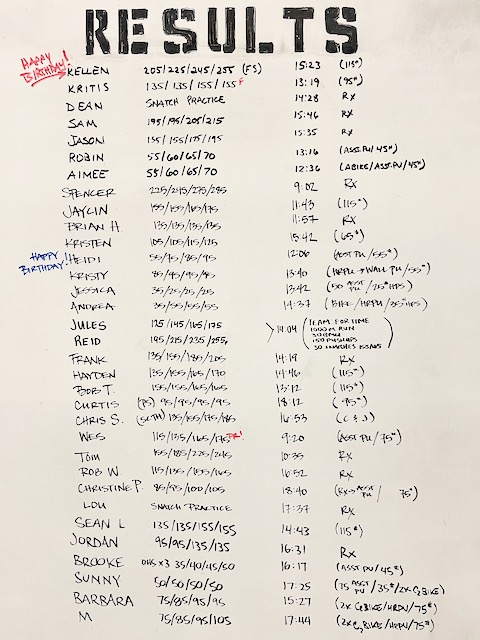 RESULTS
HAPPY BIRTHDAY!
KELLEN 205/225/245/255 (FS) 15:23 (115#)
KRITIS 135/135/155/155 F 13:19 (95#)
DEAN SNATCH PRACTICE 14:28 RX
SAM 195/195/205/215 15:46 RX
JASON 155/155/175/195 15:35 RX
ROBIN 55/60/65/70 13:16 (ASST.PU/45#)
AIMEE 55/60/65/70 12:36 (ABIKE/ASST.PU/45#)
SPENCER 225/245/275/285 9:02 RX
JAYLIN 155/155/165/175 11:43 (115#)
BRIAN H. 135/135/135/135 11:57 RX
KRISTEN 105/105/115/125 15:42 (65#)
HAPPY BIRTHDAY!
HEIDI 55/75/85/95 12:06 (ASST PU/55#)
KRISTY 85/95/95/95 13:40 (HRPU → WALL PU/55#)
JESSICA 35/25/25/25 13:42 (50 ASST PU/25# HPS)
ANDREA 35/55/55/55 14:37 (BIKE/HRPU/35# HPS)
JULES 125/145/165/175
REID 195/215/235/255
14:04 (TEAM FOR TIME
1000M RUN
150 PUSHUPS
FRANK 135/155/185/205 14:19 RX
HAYDEN 135/155/165/170 14:46 (115#)
BOB T. 155/155/165/165 13:12 (115#)
CURTIS (PS) 95/95/95/95 18:12 (95#)
CHRIS S. 135/155/175/185 16:53 (C & J)
WES 115/135/165/175 PR! 9:20 (ASST PU/75#)
TOM 155/185/225/245 10:35 RX
ROB W. 115/135/155/165 16:52 RX
CHRISTINE P. 85/95/100/105 18:40 (RX → ASST PU / 75#)
LOU SNATCH PRACTICE 17:37 RX
SEAN L 135/135/155/155 14:43 (115#)
JORDAN 95/95/135/135 16:31 RX
BROOKE OHS x3 35/40/45/50 16:17 (ASST PU/45#)
SUNNY 50/50/50/50 17:25 (75 ASST PU/35#/2K C2 BIKE)
BARBARA 75/85/95/95 15:27 (2K C2 BIKE/HRPU/75#)
M 75/85/95/105 17:44 (2K C2 BIKE/HRPU/75#)